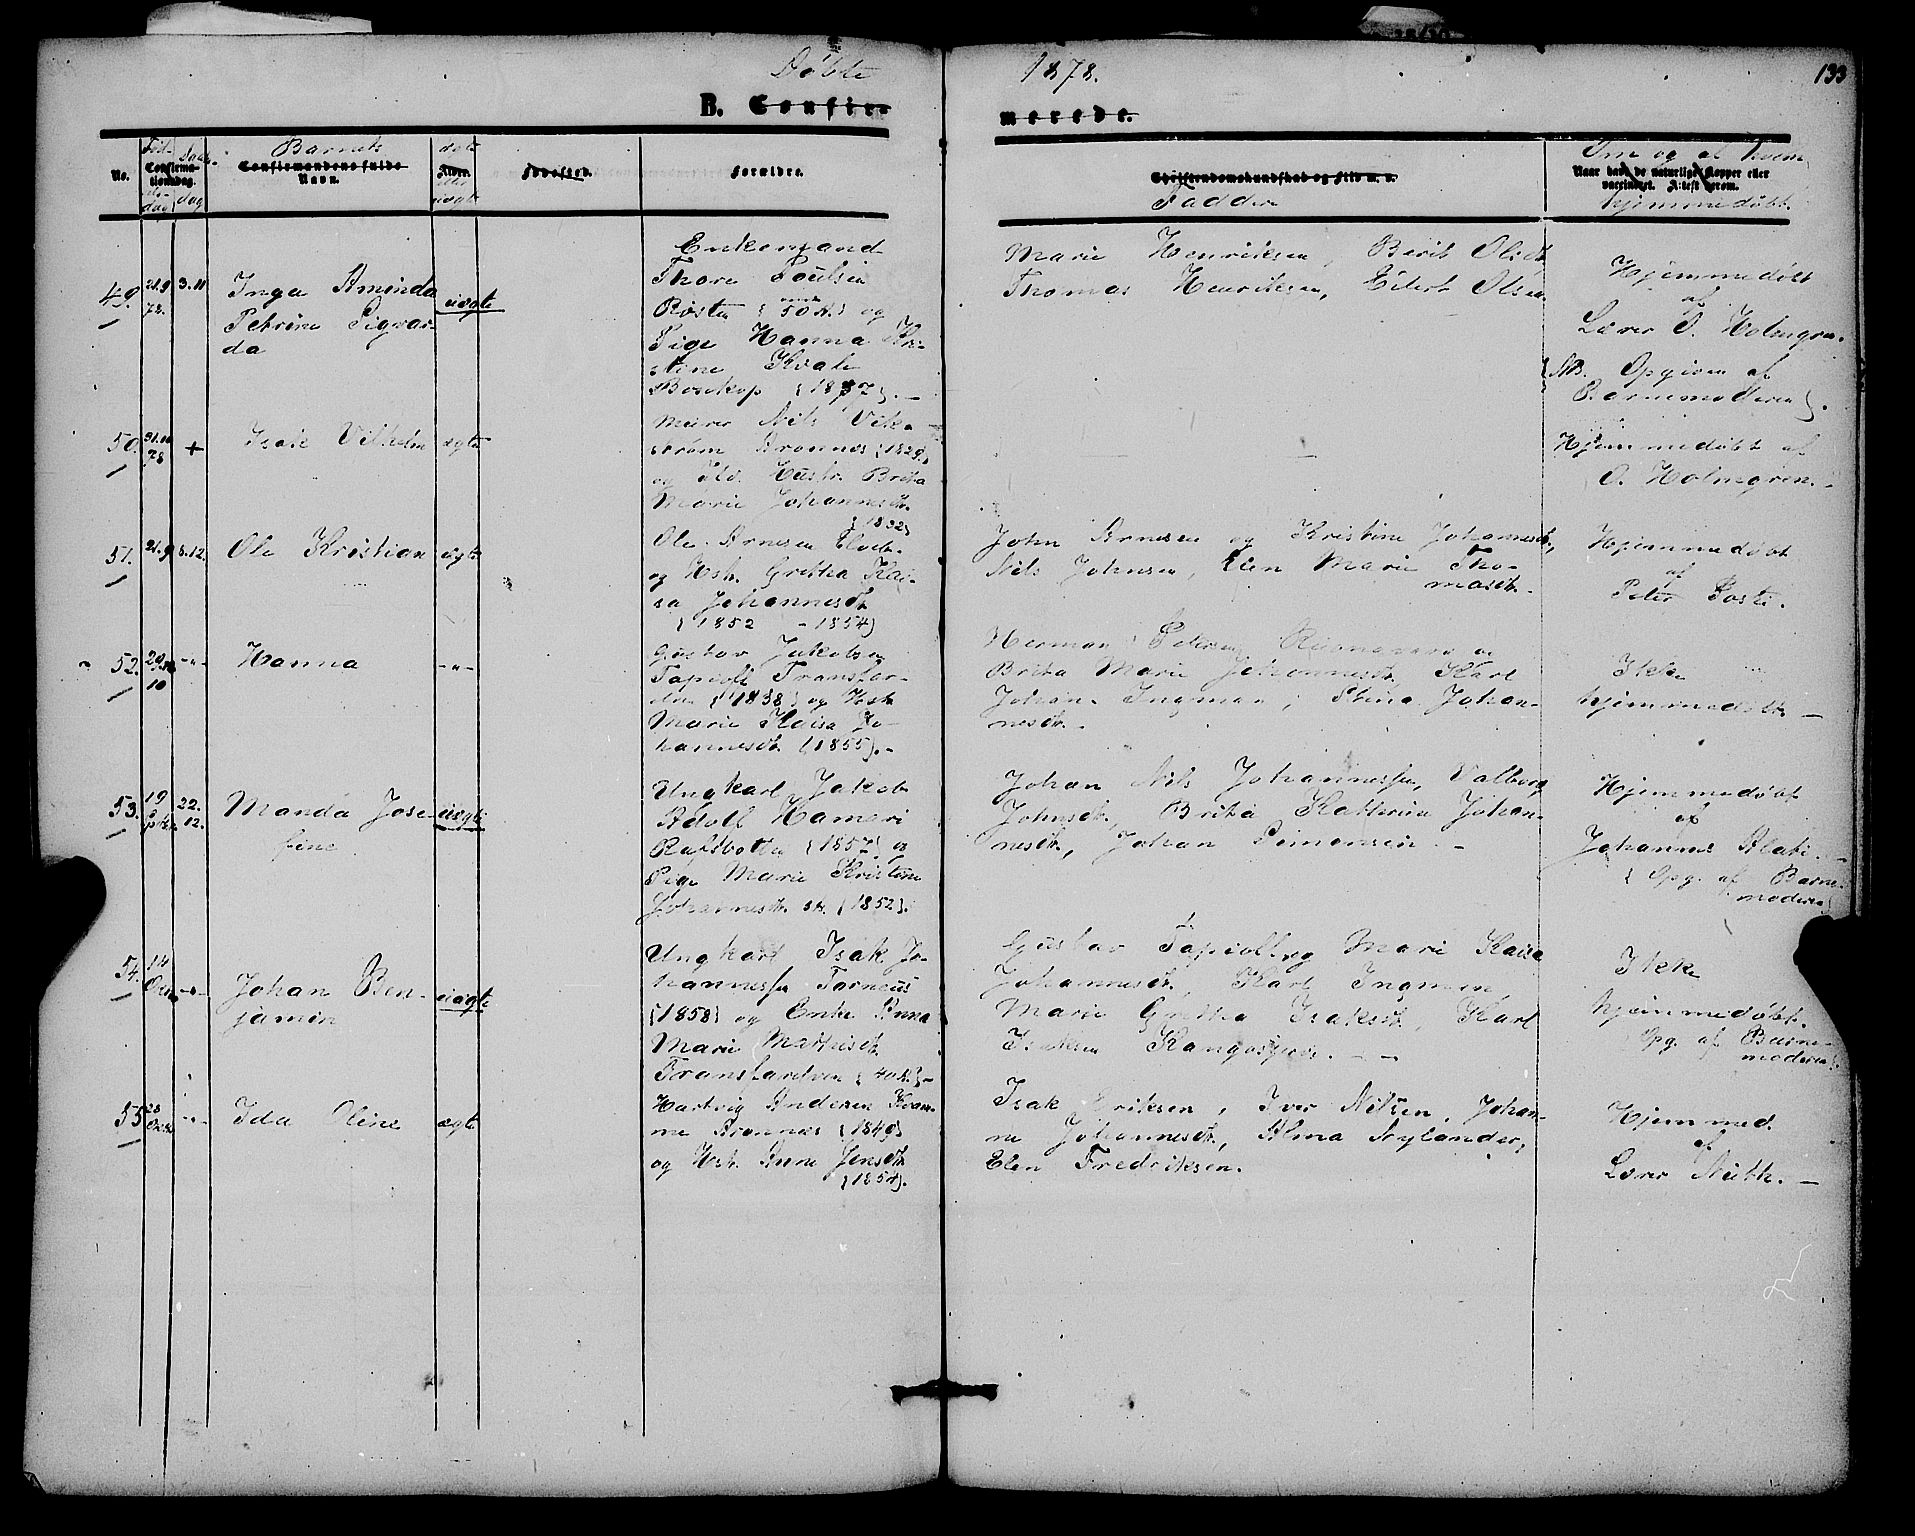 Døbte 1878. 133
B. Confir- merede.
Barnets
No. Confirma- tionsdag. Confirmandens fulde Navn. Alder. Fødested. Forældre. Christendomskundskab og Flid m. v.
Faddere
Om og af hvem
Naar havt de naturlige Kopper eller vaccineret. Attest derom.
hjemmedøbt.
49. 21.9 78. 3.11
Inga Aminda
Petrine Sigvar-
da
uægte
Enkemand
Thore Poulsen
og
Pige Hanna Kri-
stine Kvale
Bosekop
Marie Henriksen, Berit Olsdt
Thomas Henriksen, Eilert Olsen
Hjemmedøbt
af
Lærer O. Holmgren.
NB. Opgiven af
Barnemoderen.
50. 31.10 78 +
Isak Vilhelm
ægte
Murer Nils Vik-
strøm Aronnes (1829)
og Hustr. Brita
Marie Johannesdt.
(1832)
Hjemmedøbt af
O. Holmgren.
51. 21.9 8.12.
Ole Kristian
ægte
Ole Arnesen
og Hst. Gretha Kai-
sa Johannesdt
(1852 - 1854)
John Arnesen og Kristine Johannesdt,
Nils Johnsen, Elen Marie Tho-
masdt.
Hjemmedøbt
af
Peter Posti.
52. 29. 10 -"-
Hanna
-"-
Gustav Jakobsen
Tapioli Transfar-
den (1838) og Hst
Marie Kaisa Jo-
hannesdt (1855).-
Herman Petersen og
Brita Marie Johannesdt, Karl
Johan Ingman, Stina Johan-
nesdt.
Ikke
hjemmedøbt. -
53. 19 22.12.
Manda Jose-
fine
uægte
Ungkarl Jakob
Adolf Hameri
Rafsbotten (1857) og
Pige Marie Kristine
Johannesdt (1852).
Johan Nils Johannessen, Valborg
Johnsdt, Brita Katherina Johan-
nesdt, Johan Simonsen. -
Hjemmedøbt
af
Johannes Alati. -
(Opg. af Barne-
moderen)
54. 14 -"-
Johan Ben-
jamin
uægte
Ungkarl Isak Jo-
hannessen Torneus
(1858) og Enke Anna
Marie Mathisdt
Transfardven (40 A.) -
Gustav Tapioli og Marie Kaisa
Johannesdt, Karl Ingman,
Marie Gretha Isaksdt, Karl
Isaksen
Ikke
hjemmedøbt.
(Opg. af Barne-
moderen).
55. 28 -"-
Ida Oline
ægte
Hartvig Andersen Kvam-
me Aronnes (1849)
og Hst. Anne Jensdt
(1854).
Isak Eriksen, Iver Nilsen, Johan-
ne Johannesdt, Alma Nylander,
Elen Fredriksen.
Hjemmed.
af
Lærer Muth. -